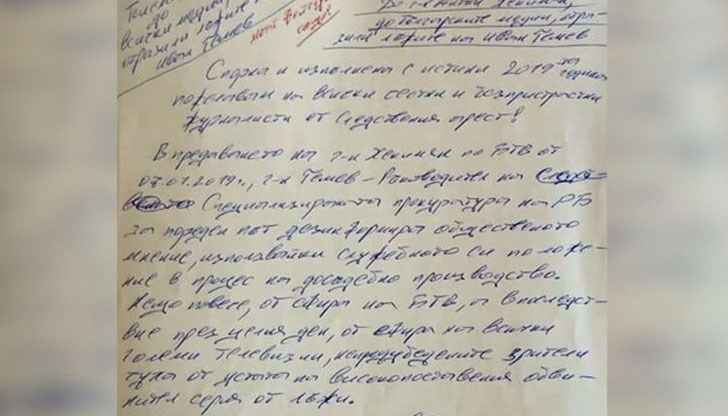 до
всички медии,
отразили лъжите на
Иван Гешев
до българските медии, отра-
зили лъжите на Иван Гешев
Спорна и изпълнена с истини 2019та година
пожелавам на всички честни и безпристрастни
журналисти от следствения арест!
В предаването на г-н Хекимян по БТВ от
07.01.2019г., г-н Гешев - Ръководител на
Специализираната прокуратура на РБ
за пореден път дезинформира общественото
мнение, използвайки служебното си положе-
ние в процес на досъдебно производство.
Нещо повече, от ефира на БТВ, а впоследст-
вие през целия ден, от ефира на всички
големи телевизии, непредубедените зрители
чуха от устата на високопоставения обви-
нител серия от лъжи.